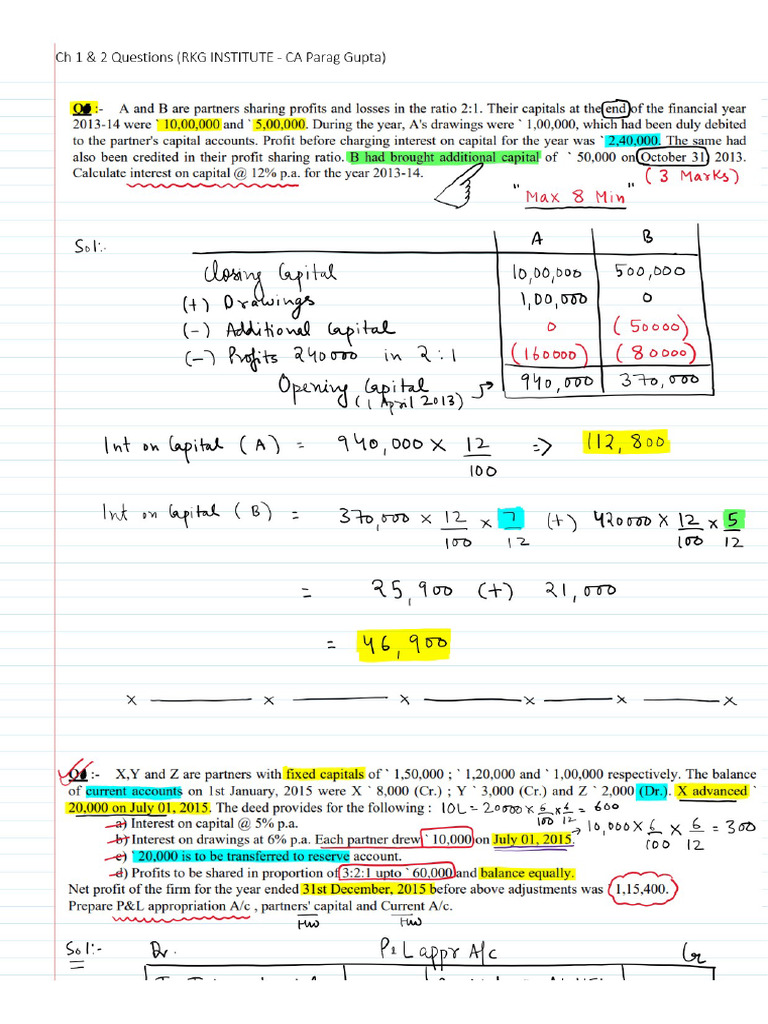 Ch 1 & 2 Questions (RKG INSTITUTE - CA Parag Gupta)
:- A and B are partners sharing profits and losses in the ratio 2:1. Their capitals at the end of the financial year
2013-14 were ` 10,00,000 and ` 5,00,000. During the year, A's drawings were ` 1,00,000, which had been duly debited
to the partner's capital accounts. Profit before charging interest on capital for the year was ` 2,40,000. The same had
also been credited in their profit sharing ratio. B had brought additional capital of ` 50,000 on October 31, 2013.
Calculate interest on capital @ 12% p.a. for the year 2013-14.
(3 Marks)
"Max 8 Min"
Sol:-
A B
Closing Capital 10,00,000 500,000
(+) Drawings 1,00,000 0
(-) Additional Capital 0 (50000)
(-) Profits 240000 in 2:1 (160000) (80000)
Opening Capital 940,000 370,000
(1 April 2013)
Int on Capital (A) = 940,000 x 12/100 => 112,800
Int on Capital (B) = 370,000 x 12/100 x 7/12 (+) 420000 x 12/100 x 5/12
= 25,900 (+) 21,000
= 46,900
x x x x x x
:- X,Y and Z are partners with fixed capitals of ` 1,50,000 ; ` 1,20,000 and ` 1,00,000 respectively. The balance
of current accounts on 1st January, 2015 were X ` 8,000 (Cr.) ; Y ` 3,000 (Cr.) and Z ` 2,000 (Dr.). X advanced `
20,000 on July 01, 2015. The deed provides for the following : IOL = 20000 x 6/100 x 6/12 = 600
a) Interest on capital @ 5% p.a.
b) Interest on drawings at 6% p.a. Each partner drew ` 10,000 on July 01, 2015. 10,000 x 6/100 x 6/12 = 300
c) ` 20,000 is to be transferred to reserve account.
d) Profits to be shared in proportion of 3:2:1 upto ` 60,000 and balance equally.
Net profit of the firm for the year ended 31st December, 2015 before above adjustments was 1,15,400.
Prepare P&L appropriation A/c , partners' capital and Current A/c.
HW HW
Sol:- Dr. P&L appr A/c Cr